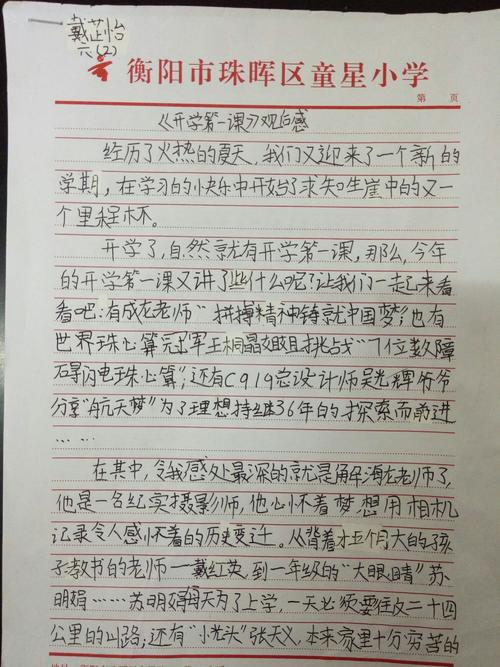 戴芷怡
六(2)
衡阳市珠晖区童星小学
第 页
《开学第一课》观后感
经历了火热的夏天,我们又迎来了一个新的
学期,在学习的快乐中开始了求知生崖中的又一
个里程杯。
开学了,自然就有开学第一课,那么,今年
的开学第一课又讲了些什么呢?让我们一起来看
看吧:有成龙老师“拼搏精神铸就中国梦”;也有
世界珠心算冠军王桐晶姐姐挑战“7位数障
碍闪电珠心算”;还有C919总设计师吴光辉爷爷
分享“航天梦”为了理想持续36年的探索而前进
……
在其中,令我感处最深的就是解海龙老师了,
他是一名纪实摄影师,他心怀着梦想用相机
记录令人感怀着的历史变迁。从背着才五个月大的孩
子教书的老师——戴红英,到一年级的“大眼睛”苏
明娟……苏明娟每天为了上学,一天必须要往反二十四
公里的山路;还有“小光头”张天义,本来家里十分穷苦的